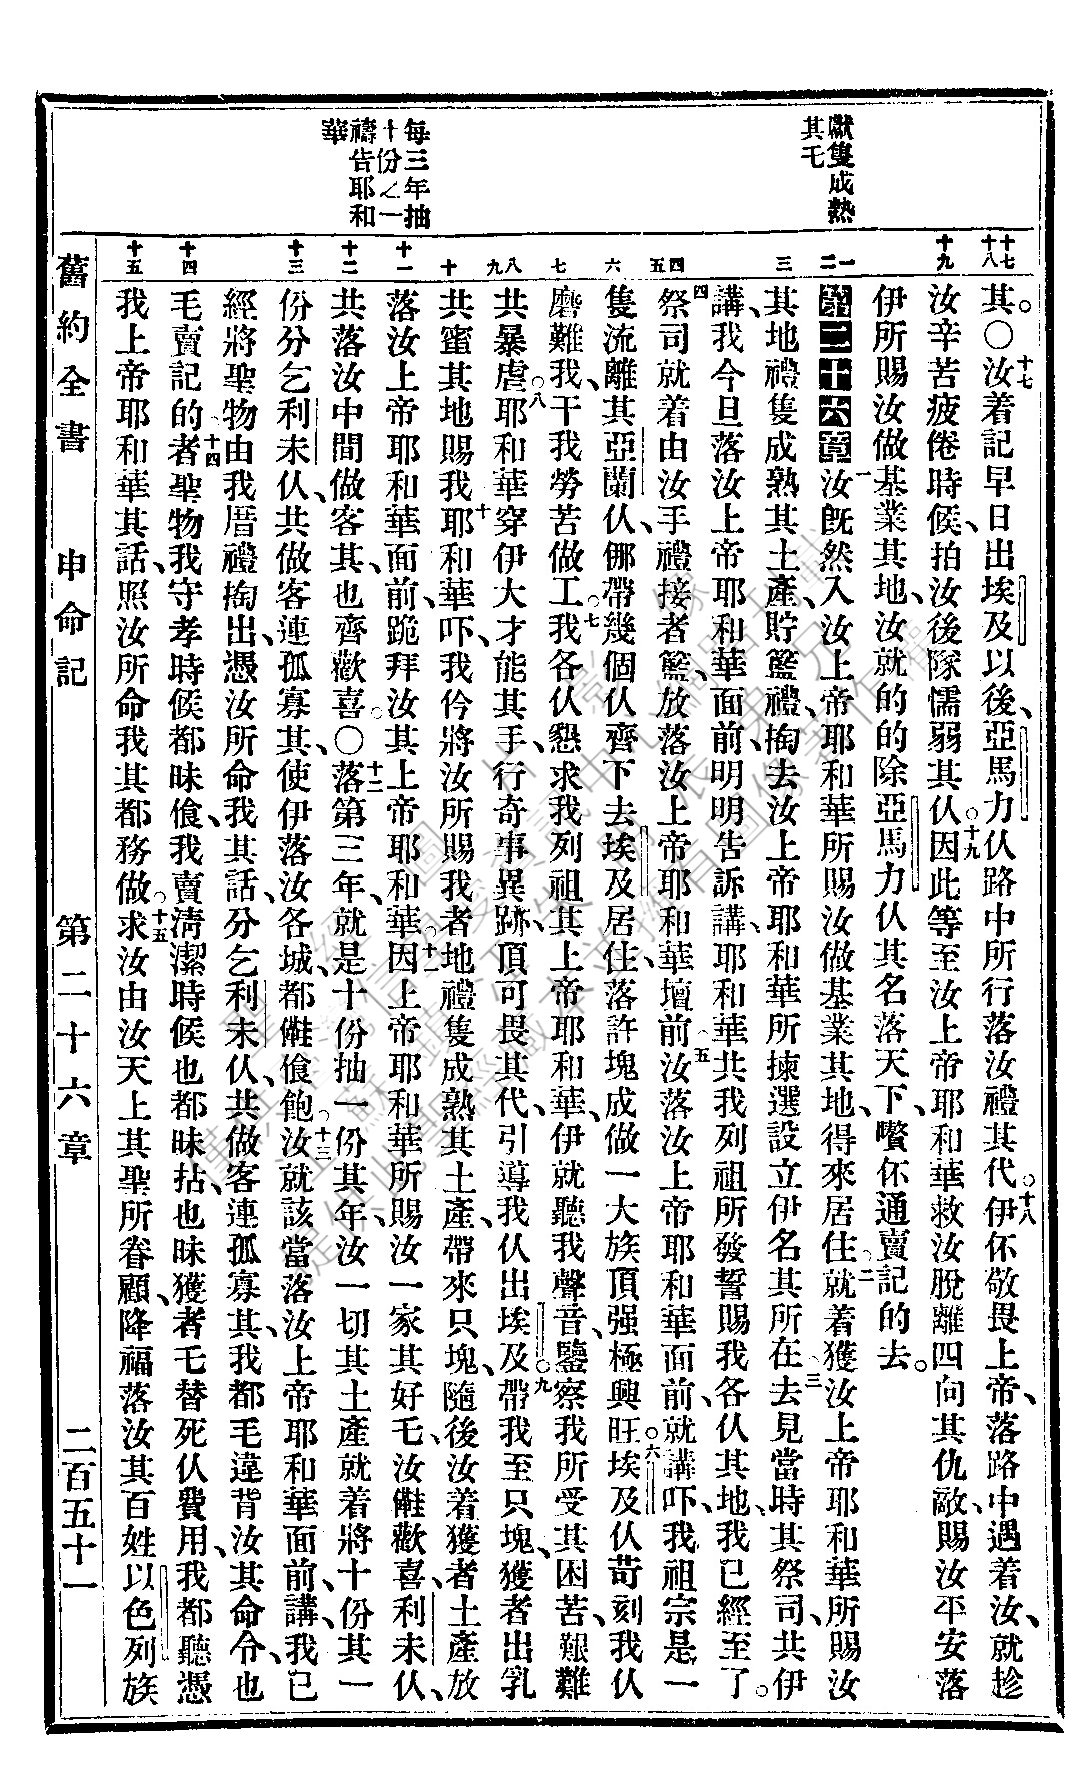 獻隻成熟
其乇
每三年抽
十份之一
禱告耶和
華
十七
十八
十九
一
二
三
四
五
六
七
八
九
十
十一
十二
十三
十四
十五
其。〇十七汝着記早日出埃及以後、亞馬力仈路中所行落汝禮其代。十八伊伓敬畏上帝、落路中遇着汝、就趁
汝辛苦疲倦時候、拍汝後隊懦弱其仈。十九因此等至汝上帝耶和華救汝脫離四向其仇敵、賜汝平安落
伊所賜汝做基業其地、汝就的的除亞馬力仈其名落天下、嚽伓通賣記的去。
第二十六章一汝旣然入汝上帝耶和華所賜汝做基業其地、得來居住、二就着獲汝上帝耶和華所賜汝
其地禮隻成熟其土產、貯籃禮、掏去汝上帝耶和華所揀選設立伊名其所在。三去見當時其祭司、共伊
講、我今旦落汝上帝耶和華面前、明明告訴講、耶和華共我列祖所發誓賜我各仈其地、我已經至了。
四祭司就着由汝手禮接者籃、放落汝上帝耶和華壇前。五汝落汝上帝耶和華面前、就講吓、我祖宗是一
隻流離其亞蘭仈、㑚帶幾個仈齊下去埃及居住、落許塊成做一大族頂强極興旺。六埃及仈苛刻我仈
磨難我、干我勞苦做工。七我各仈懇求我列祖其上帝耶和華、伊就聽我聲音、鑒察我所受其困苦艱難
共暴虐。八耶和華穿伊大才能其手、行奇事異跡、頂可畏其代、引導我仈出埃及。九帶我至只塊、獲者出乳
共蜜其地賜我。十耶和華吓、我仱將汝所賜我者地禮隻成熟其土產、帶來只塊、隨後汝着獲者土產放
落汝上帝耶和華面前、跪拜汝其上帝耶和華。十一因上帝耶和華所賜汝一家其好乇、汝㒰歡喜、利未仈、
共落汝中間做客其、也齊歡喜。〇十二落第三年、就是十份抽一份其年、汝一切其土產就着將十份其一
份分乞利未仈、共做客連孤寡其、使伊落汝各城、都㒰飱飽。十三汝就該當落汝上帝耶和華面前、講、我已
經將聖物由我厝禮掏出、憑汝所命我其話、分乞利未仈、共做客連孤寡其、我都毛違背汝其命令、也
毛賣記的。十四者聖物我守孝時候都昧飱、我賣淸潔時候也都昧拈、也昧獲者乇替死仈費用、我都聽憑
我上帝耶和華其話、照汝所命我其都務做。十五求汝由汝天上其聖所眷顧、降福落汝其百姓以色列族
舊約全書 申命記 第二十六章 二百五十一